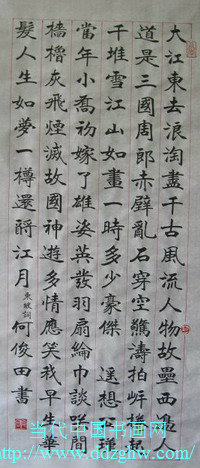 大江東去浪淘盡千古風流人物故壘西邊人
道是三國周郎赤壁亂石穿空驚濤拍岸捲起
千堆雪江山如畫一時多少豪傑 遥想公瑾
當年小喬初嫁了雄姿英發羽扇綸巾談笑間
檣櫓灰飛煙滅故國神遊多情應笑我早生華
髮人生如夢一樽還酹江月 東坡詞 何俊田書
当代中国书画网
http://www.ddzghw.com/